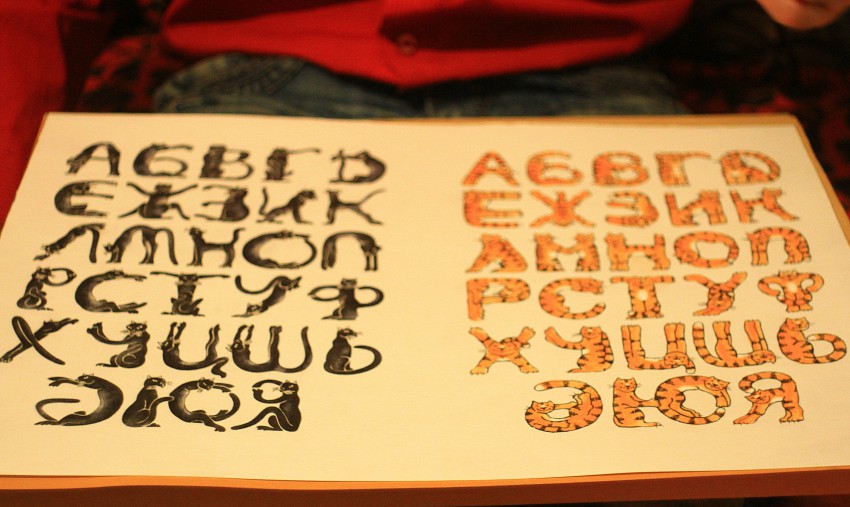 АБВГД
ЕЖЗИК
ЛМНОП
РСТУФ
ХЧЦШЬ
ЭЮЯ
АБВГД
ЕЖЗИК
ЛМНОП
РСТУФ
ХЧЦШЬ
ЭЮЯ